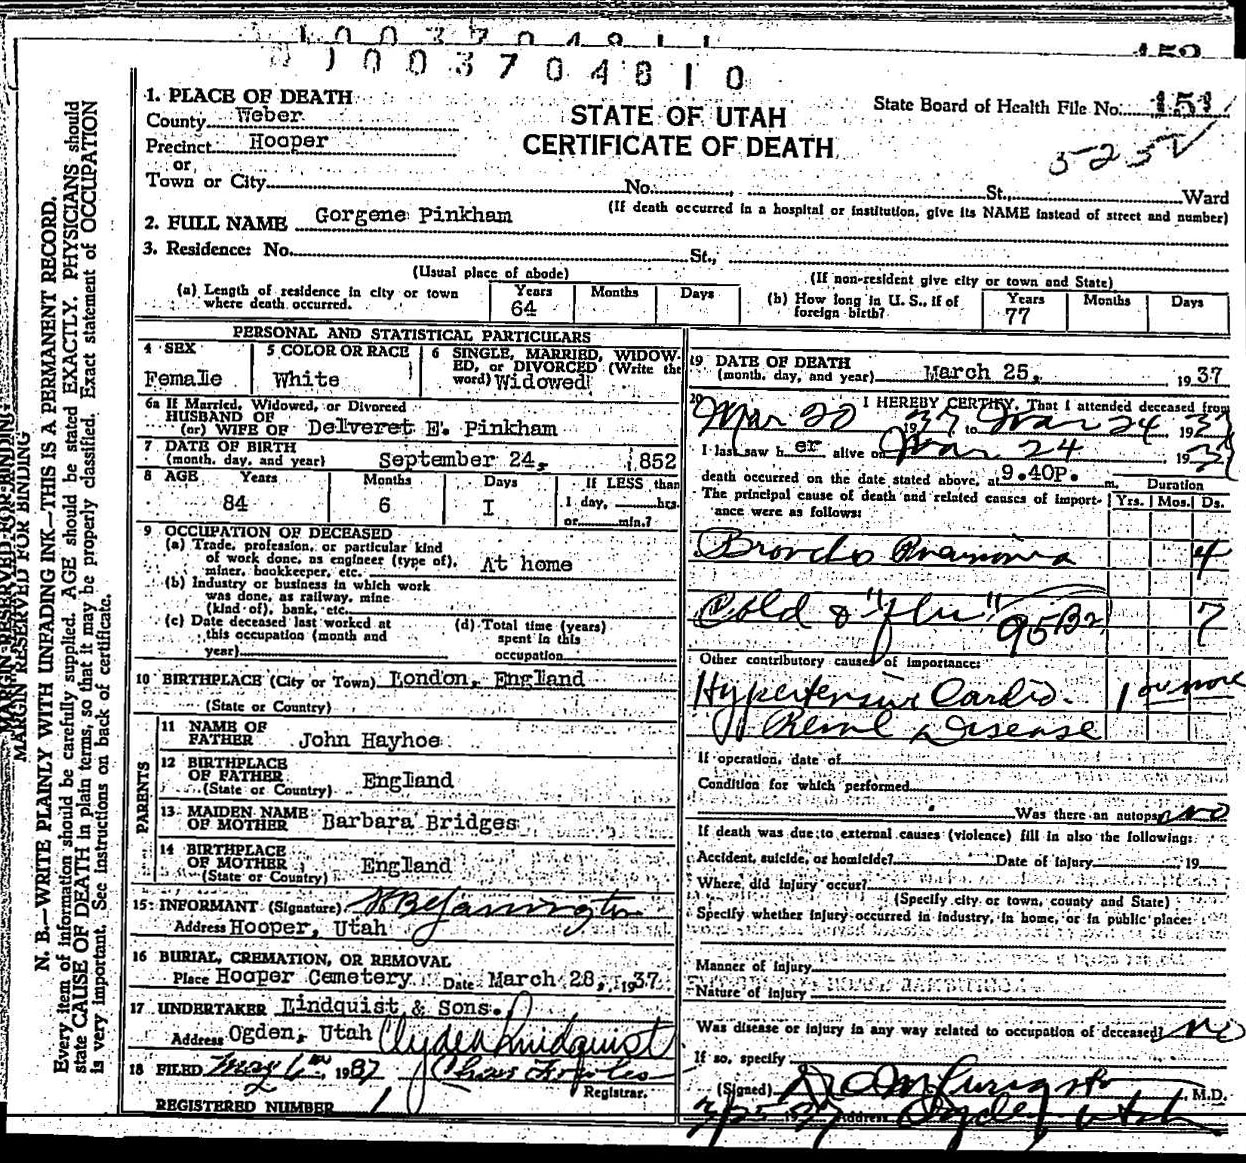 1003704811
1003704810
150
1. PLACE OF DEATH
County Weber
Precinct Hooper
or
Town or City No. St., Ward
STATE OF UTAH
CERTIFICATE OF DEATH
State Board of Health File No. 151
(If death occurred in a hospital or institution, give its NAME instead of street and number)
2. FULL NAME Gorgene Pinkham
3. Residence: No. St.,
(Usual place of abode) (If non-resident give city or town and State)
(a) Length of residence in city or town where death occurred. Years 64 Months Days
(b) How long in U. S., if of foreign birth? Years 77 Months Days
PERSONAL AND STATISTICAL PARTICULARS
4 SEX Female
5 COLOR OR RACE White
6 SINGLE, MARRIED, WIDOWED, or DIVORCED (Write the word) Widowed
6a If Married, Widowed, or Divorced
HUSBAND OF
(or) WIFE OF Delveret E. Pinkham
7 DATE OF BIRTH
(month, day, and year) September 24, 1852
8 AGE Years 84 Months 6 Days I If LESS than 1 day, hrs. or min.?
9 OCCUPATION OF DECEASED
(a) Trade, profession, or particular kind of work done, as engineer (type of), miner, bookkeeper, etc. At home
(b) Industry or business in which work was done, as railway, mine (kind of), bank, etc.
(c) Date deceased last worked at this occupation (month and year)
(d) Total time (years) spent in this occupation
10 BIRTHPLACE (City or Town) London, England
(State or Country)
PARENTS
11 NAME OF FATHER John Hayhoe
12 BIRTHPLACE OF FATHER (State or Country) England
13 MAIDEN NAME OF MOTHER Barbara Bridges
14 BIRTHPLACE OF MOTHER (State or Country) England
15 INFORMANT (Signature)
Address Hooper, Utah
16 BURIAL, CREMATION, OR REMOVAL
Place Hooper Cemetery Date March 28, 1937
17 UNDERTAKER Lindquist & Sons.
Address Ogden, Utah Clyde Lindquist
18 FILED May 1937 Chas Fowles
Registrar.
REGISTERED NUMBER 1
19 DATE OF DEATH
(month, day, and year) March 25, 1937
20 I HEREBY CERTIFY, That I attended deceased from
Mar 20 1937 to Mar 24 1937
I last saw h er alive on Mar 24 1937
death occurred on the date stated above, at 9.40P. m. Duration
The principal cause of death and related causes of importance were as follows: Yrs. Mos. Ds.
Broncho Pneumonia 4
Cold & "flu" 7
Other contributory causes of importance:
Hypertensive Cardio. 1 or more
Renal Disease
If operation, date of
Condition for which performed
Was there an autopsy NO
If death was due to external causes (violence) fill in also the following:
Accident, suicide, or homicide? Date of injury 19
Where did injury occur?
(Specify city or town, county and State)
Specify whether injury occurred in industry, in home, or in public place:
Manner of Injury
Nature of injury
Was disease or injury in any way related to occupation of deceased? No
If so, specify
(Signed) M.D.
3/25 1937 Address Ogden Utah
MARGIN RESERVED FOR BINDING
N. B.—WRITE PLAINLY WITH UNFADING INK—THIS IS A PERMANENT RECORD.
Every item of information should be carefully supplied. AGE should be stated EXACTLY. PHYSICIANS should
state CAUSE OF DEATH in plain terms, so that it may be properly classified. Exact statement of OCCUPATION
is very important. See instructions on back of certificate.